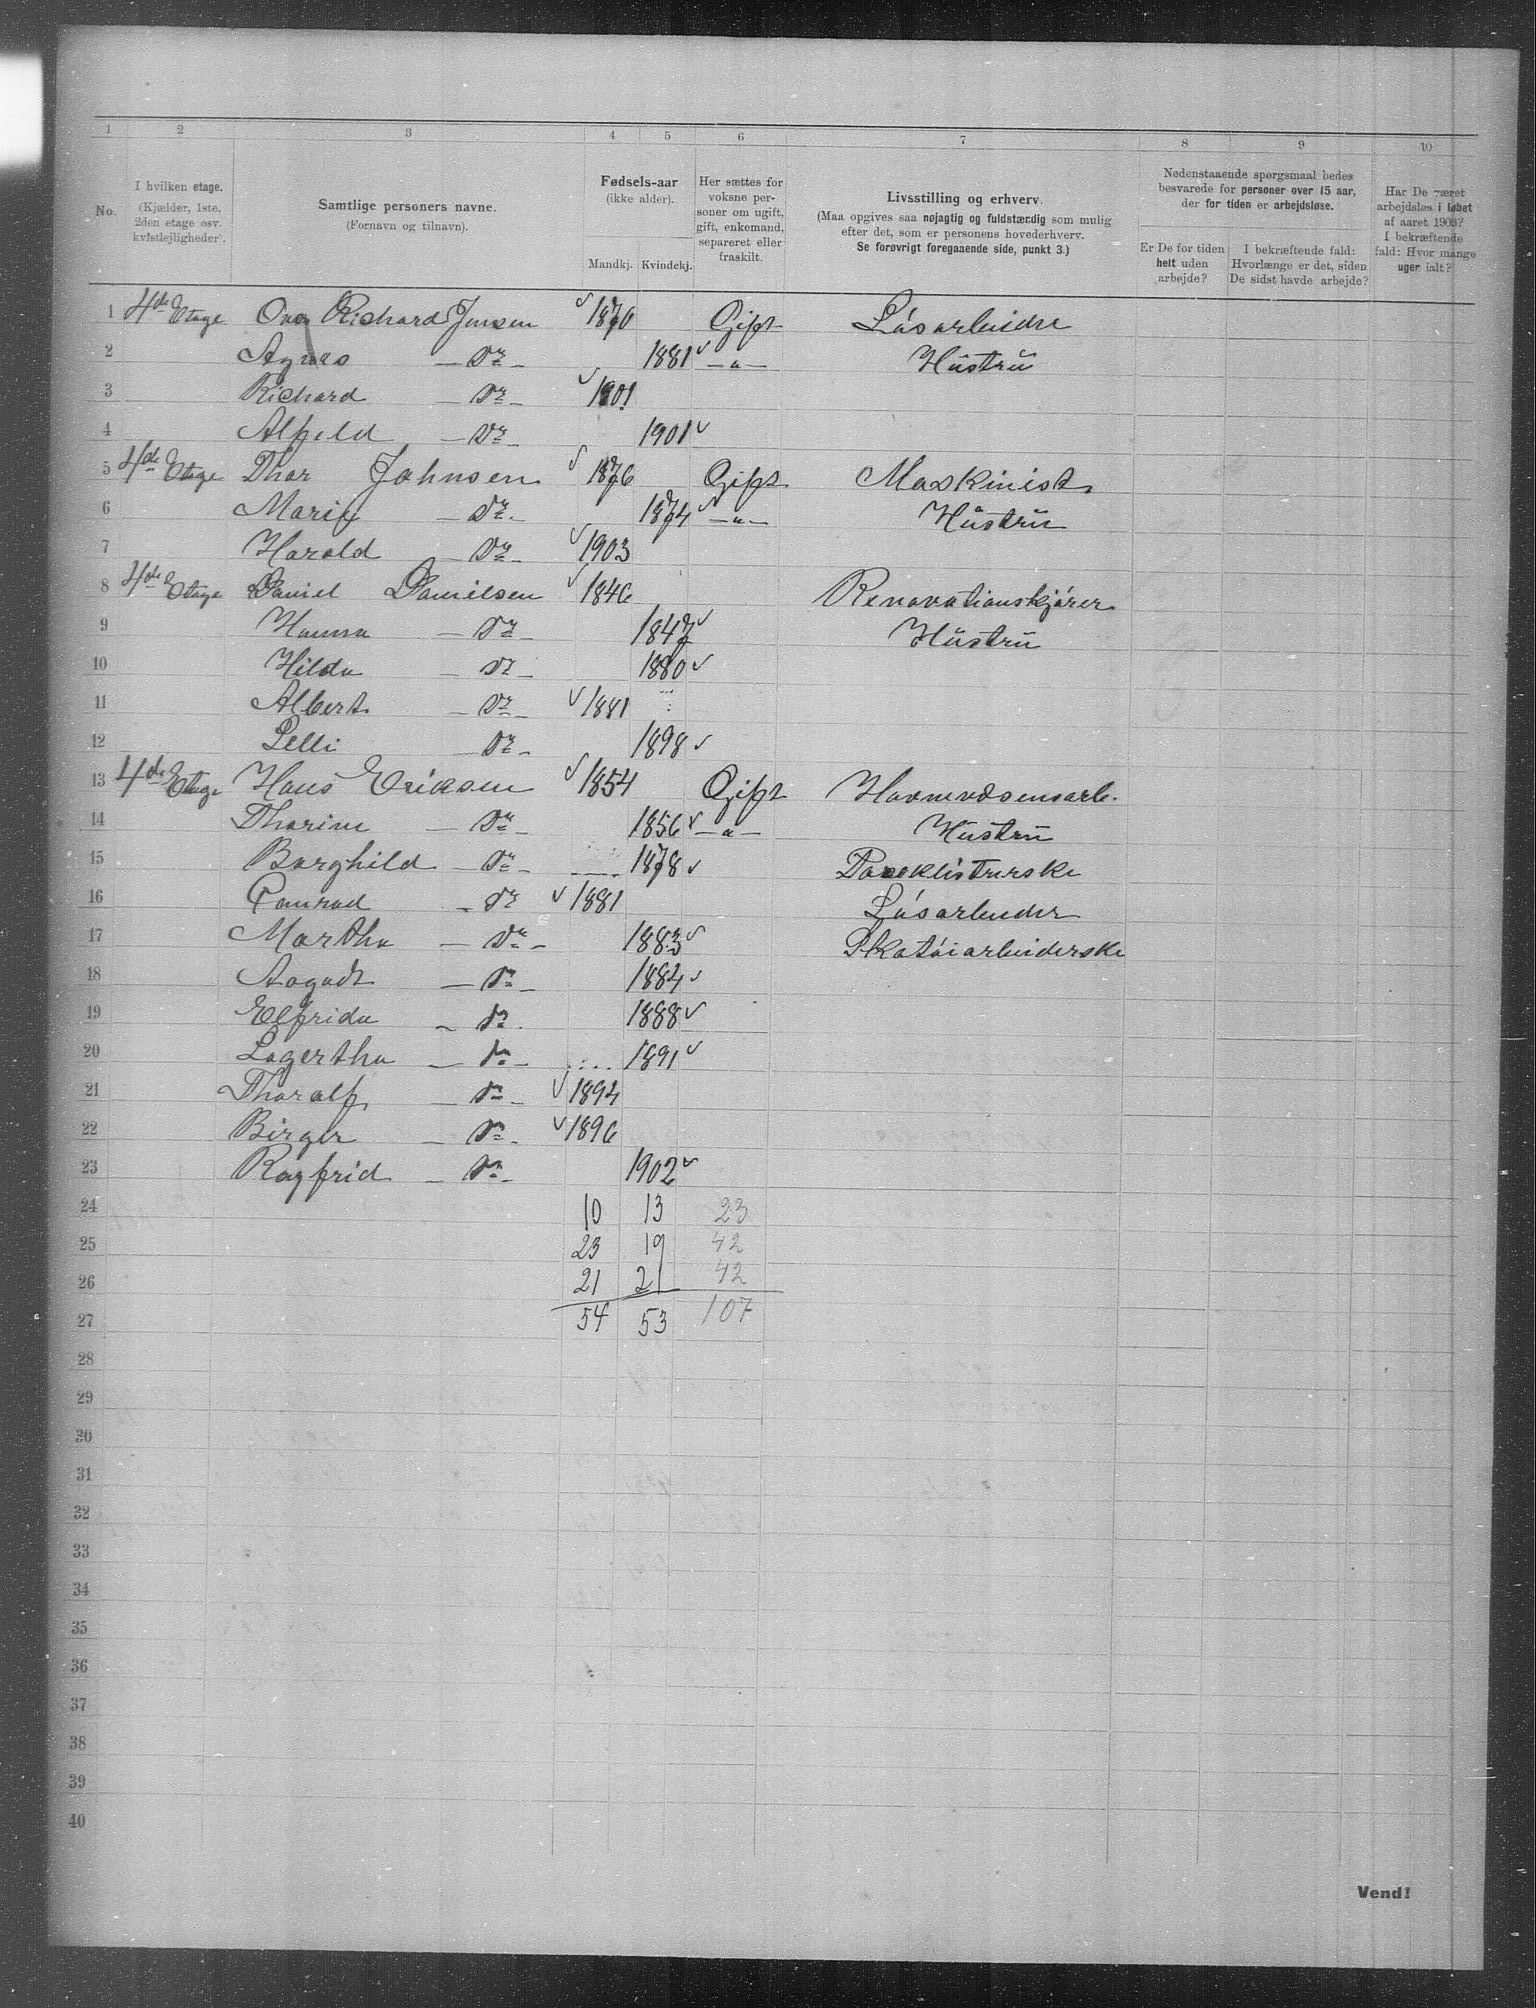 1 2 3 4 5 6 7 8 9 10
No.
I hvilken etage.
(Kjælder, 1ste,
2den etage osv.
kvistlejligheder).
Samtlige personers navne.
(Fornavn og tilnavn).
Fødsels-aar
(ikke alder).
Mandkj. Kvindekj.
Her sættes for
voksne per-
soner om ugift,
gift, enkemand,
separeret eller
fraskilt.
Livsstilling og erhverv.
(Maa opgives saa nøjagtig og fuldstændig som mulig
efter det, som er personens hovederhverv.
Se forøvrigt foregaaende side, punkt 3.)
Nedenstaaende spørgsmaal bedes
besvarede for personer over 15 aar,
der for tiden er arbejdsløse.
Er De for tiden
helt uden
arbejde?
I bekræftende fald:
Hvorlænge er det, siden
De sidst havde arbejde?
Har De været
arbejdsløs i løbet
af aaret 1903?
I bekræftende
fald: Hvor mange
uger ialt?
1 4de Etage Ove Richard Jensen 1870 Gift Lósarbeider
2 Agnes — Do — 1881 — " — Hustru
3 Richard — Do — 1901
4 Alfild — Do — 1901
5 4de Etage Thor Johnsen 1876 Gift Maskinist
6 Marie — Do — 1874 — " — Hustru
7 Harald — Do — 1903
8 4de Etage Daniel Danielsen 1846 Renovationskjórer
9 Hanna — Do — 1847 Hustru
10 Hilda — Do — 1880
11 Albert — Do — 1881
12 Lelli — Do — 1898
13 4de Etage Hans Eriksen 1854 Gift Havnevæsensarb.
14 Thorine — Do — 1856 — " — Hustru
15 Borghild — Do — 1878
16 Conrad — Do 1881 Lósarbeider
17 Martha — Do — 1883
18 Aagodt — Do — 1884
19 Elfrida — Do. 1888
20 Lagertha — Do — 1891
21 Thoralf — Do — 1894
22 Birger — Do — 1896
23 Ragfrid — Do — 1902
24 10 13 23
25 23 19 42
26 21 21 42
27 54 53 107
28
29
30
31
32
33
34
35
36
37
38
39
40
Vend!